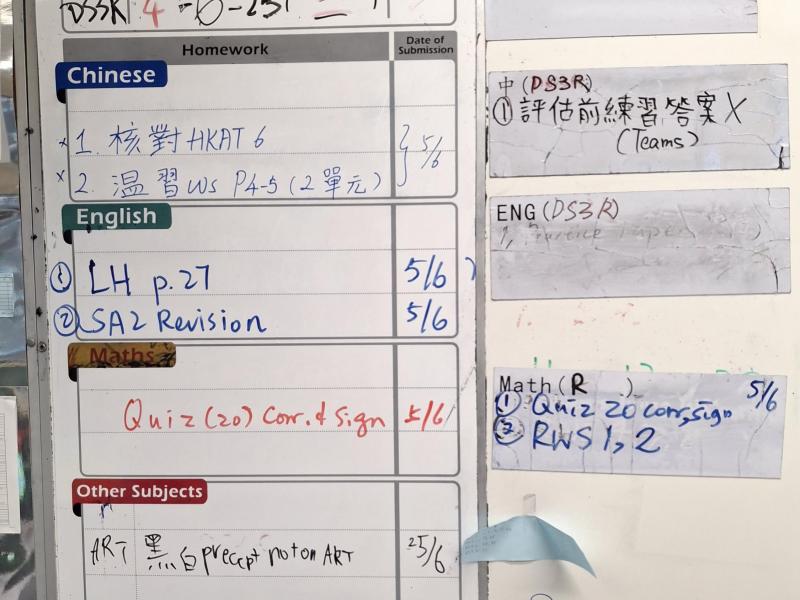 Homework
Date of Submission
Chinese
x 1. 核對 HKAT 6
x 2. 温習 WS P4-5 (2單元) } 5/6
English
① LH p.27 5/6
② SA2 Revision 5/6
Maths
Quiz (20) Corr. & Sign 5/6
Other Subjects
ART 黑白 5/6
中 (DS3R)
① 評估前練習答案 X
(Teams)
ENG (DS3R)
Math (R )
5/6
① Quiz 20 corr, sign
② RWS 1, 2